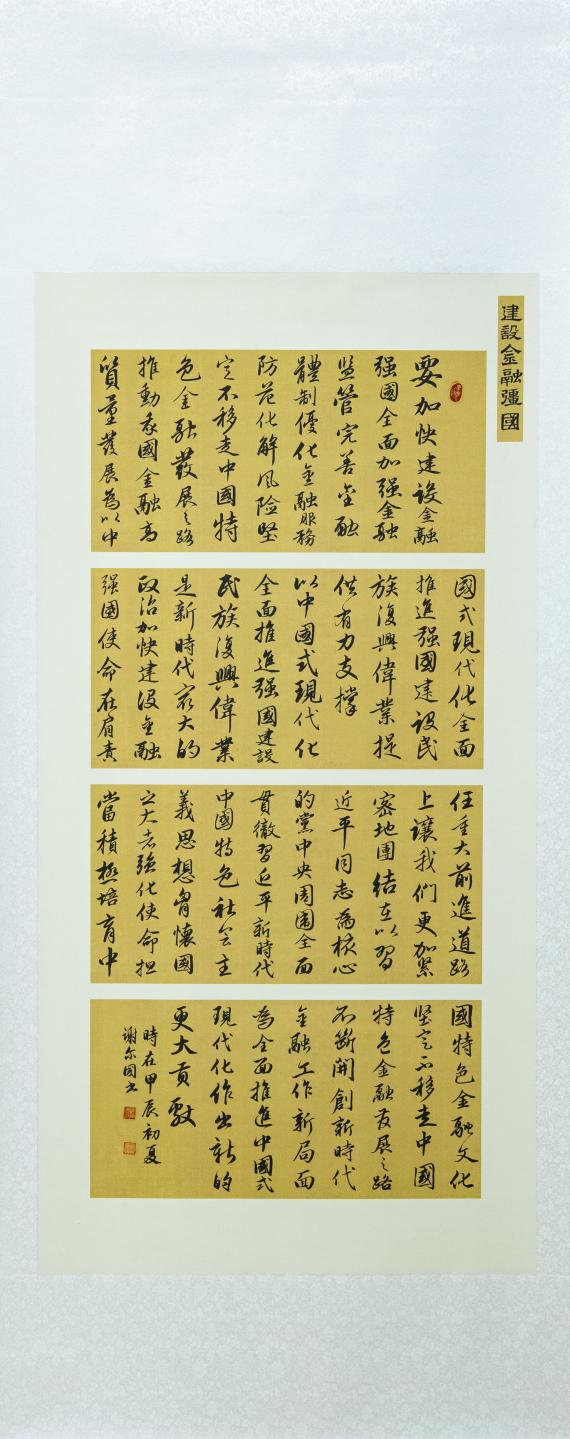 建設金融彊國
要加快建设金融
强國全面加强金融
监管完善金融
體制優化金融服務
防范化解風险坚
定不移走中國特
色金融發展之路
推動我國金融高
質量發展為以中
國式現代化全面
推進强國建设民
族復興偉業提
供有力支撑
以中國式現代化
全面推進强國建設
民族復興偉業
是新時代最大的
政治加快建设金融
强國使命在肩責
任重大前進道路
上讓我們更加緊
密地團結在以習
近平同志為核心
的黨中央周圍全面
貫徹習近平新時代
中國特色社会主
義思想胷懷國
之大者強化使命担
當積極培育中
國特色金融文化
坚定不移走中國
特色金融發展之路
不斷開創新時代
金融工作新局面
為全面推進中國式
現代化作出新的
更大貢獻
時在甲辰初夏
謝尔国书